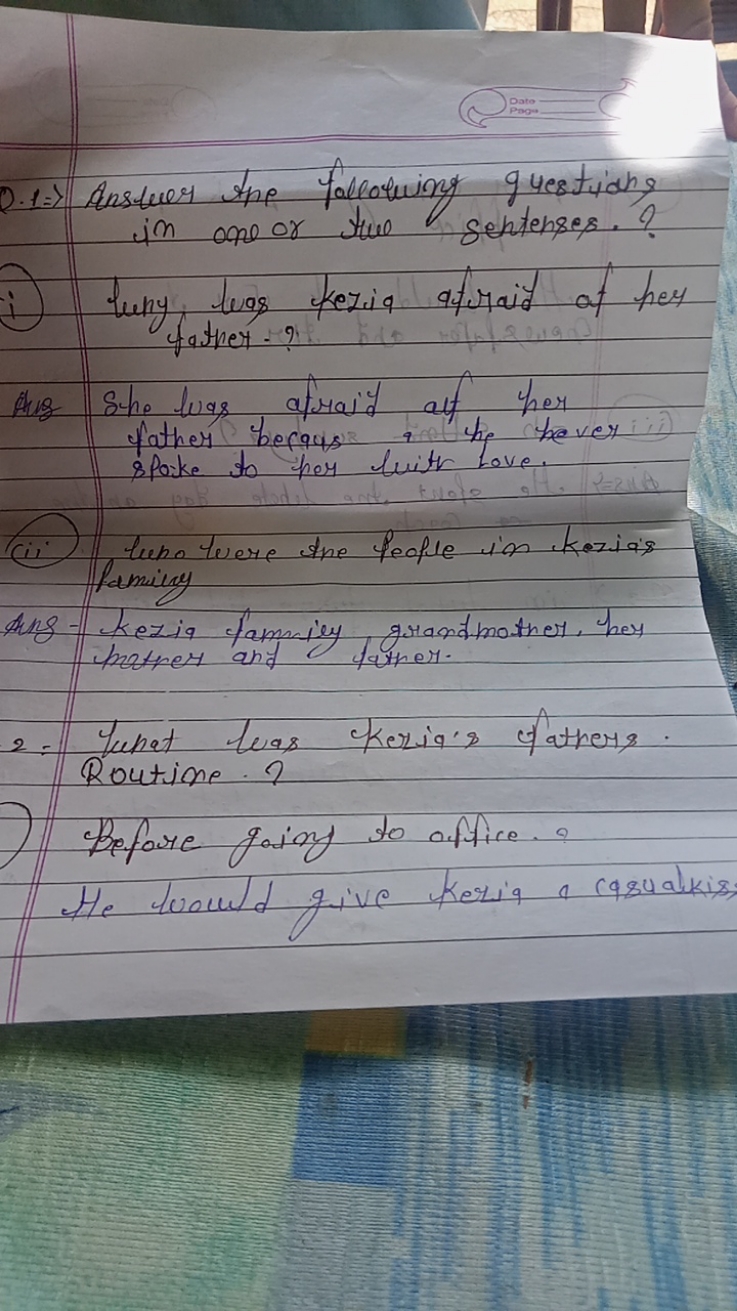 Date
Page
Q.1=> Answer the following questions
in one or two sentenses.?
i Why, was kezia afraid of her
father.?
Ans She was afraid of her
father becaus he never
spoke to her with love.
(ii) Who were the people in kezia's
family
Ans - kezia family grandmother, her
mother and father.
2 = What was kezia's fathers.
Routine.?
Before going to office.?
He would give kezia a casualkiss